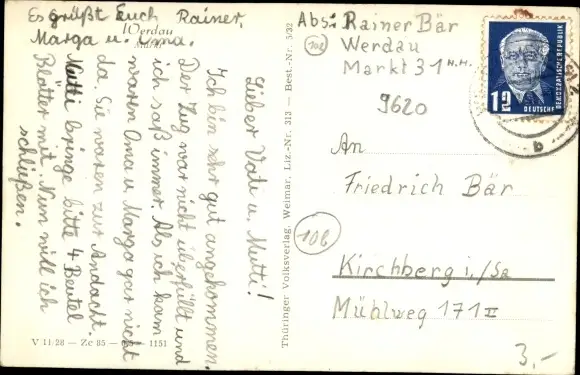 Lieber Vati u. Mutti!
Ich bin sehr gut angekommen.
Der Zug war nicht überfüllt und
ich saß immer. Als ich kam
waren Oma u. Marga gar nicht
da. Sie waren zur Andacht.
Mutti bringe bitte 4 Beutel
Blätter mit. Nun will ich
schließen.
Es grüßt Euch Rainer,
Marga u. Oma.
Werdau
Markt
V 11/28 — Zc 85 — 1151
Thüringer Volksverlag, Weimar, Liz.-Nr. 313 — Best.-Nr. 5/32
Abs: Rainer Bär
108
Werdau
Markt 31 N.H.
9620
An
Friedrich Bär
108
Kirchberg i./Sa
Mühlweg 171 II
3,-
12
DEUTSCHE
DEMOKRATISCHE REPUBLIK
b